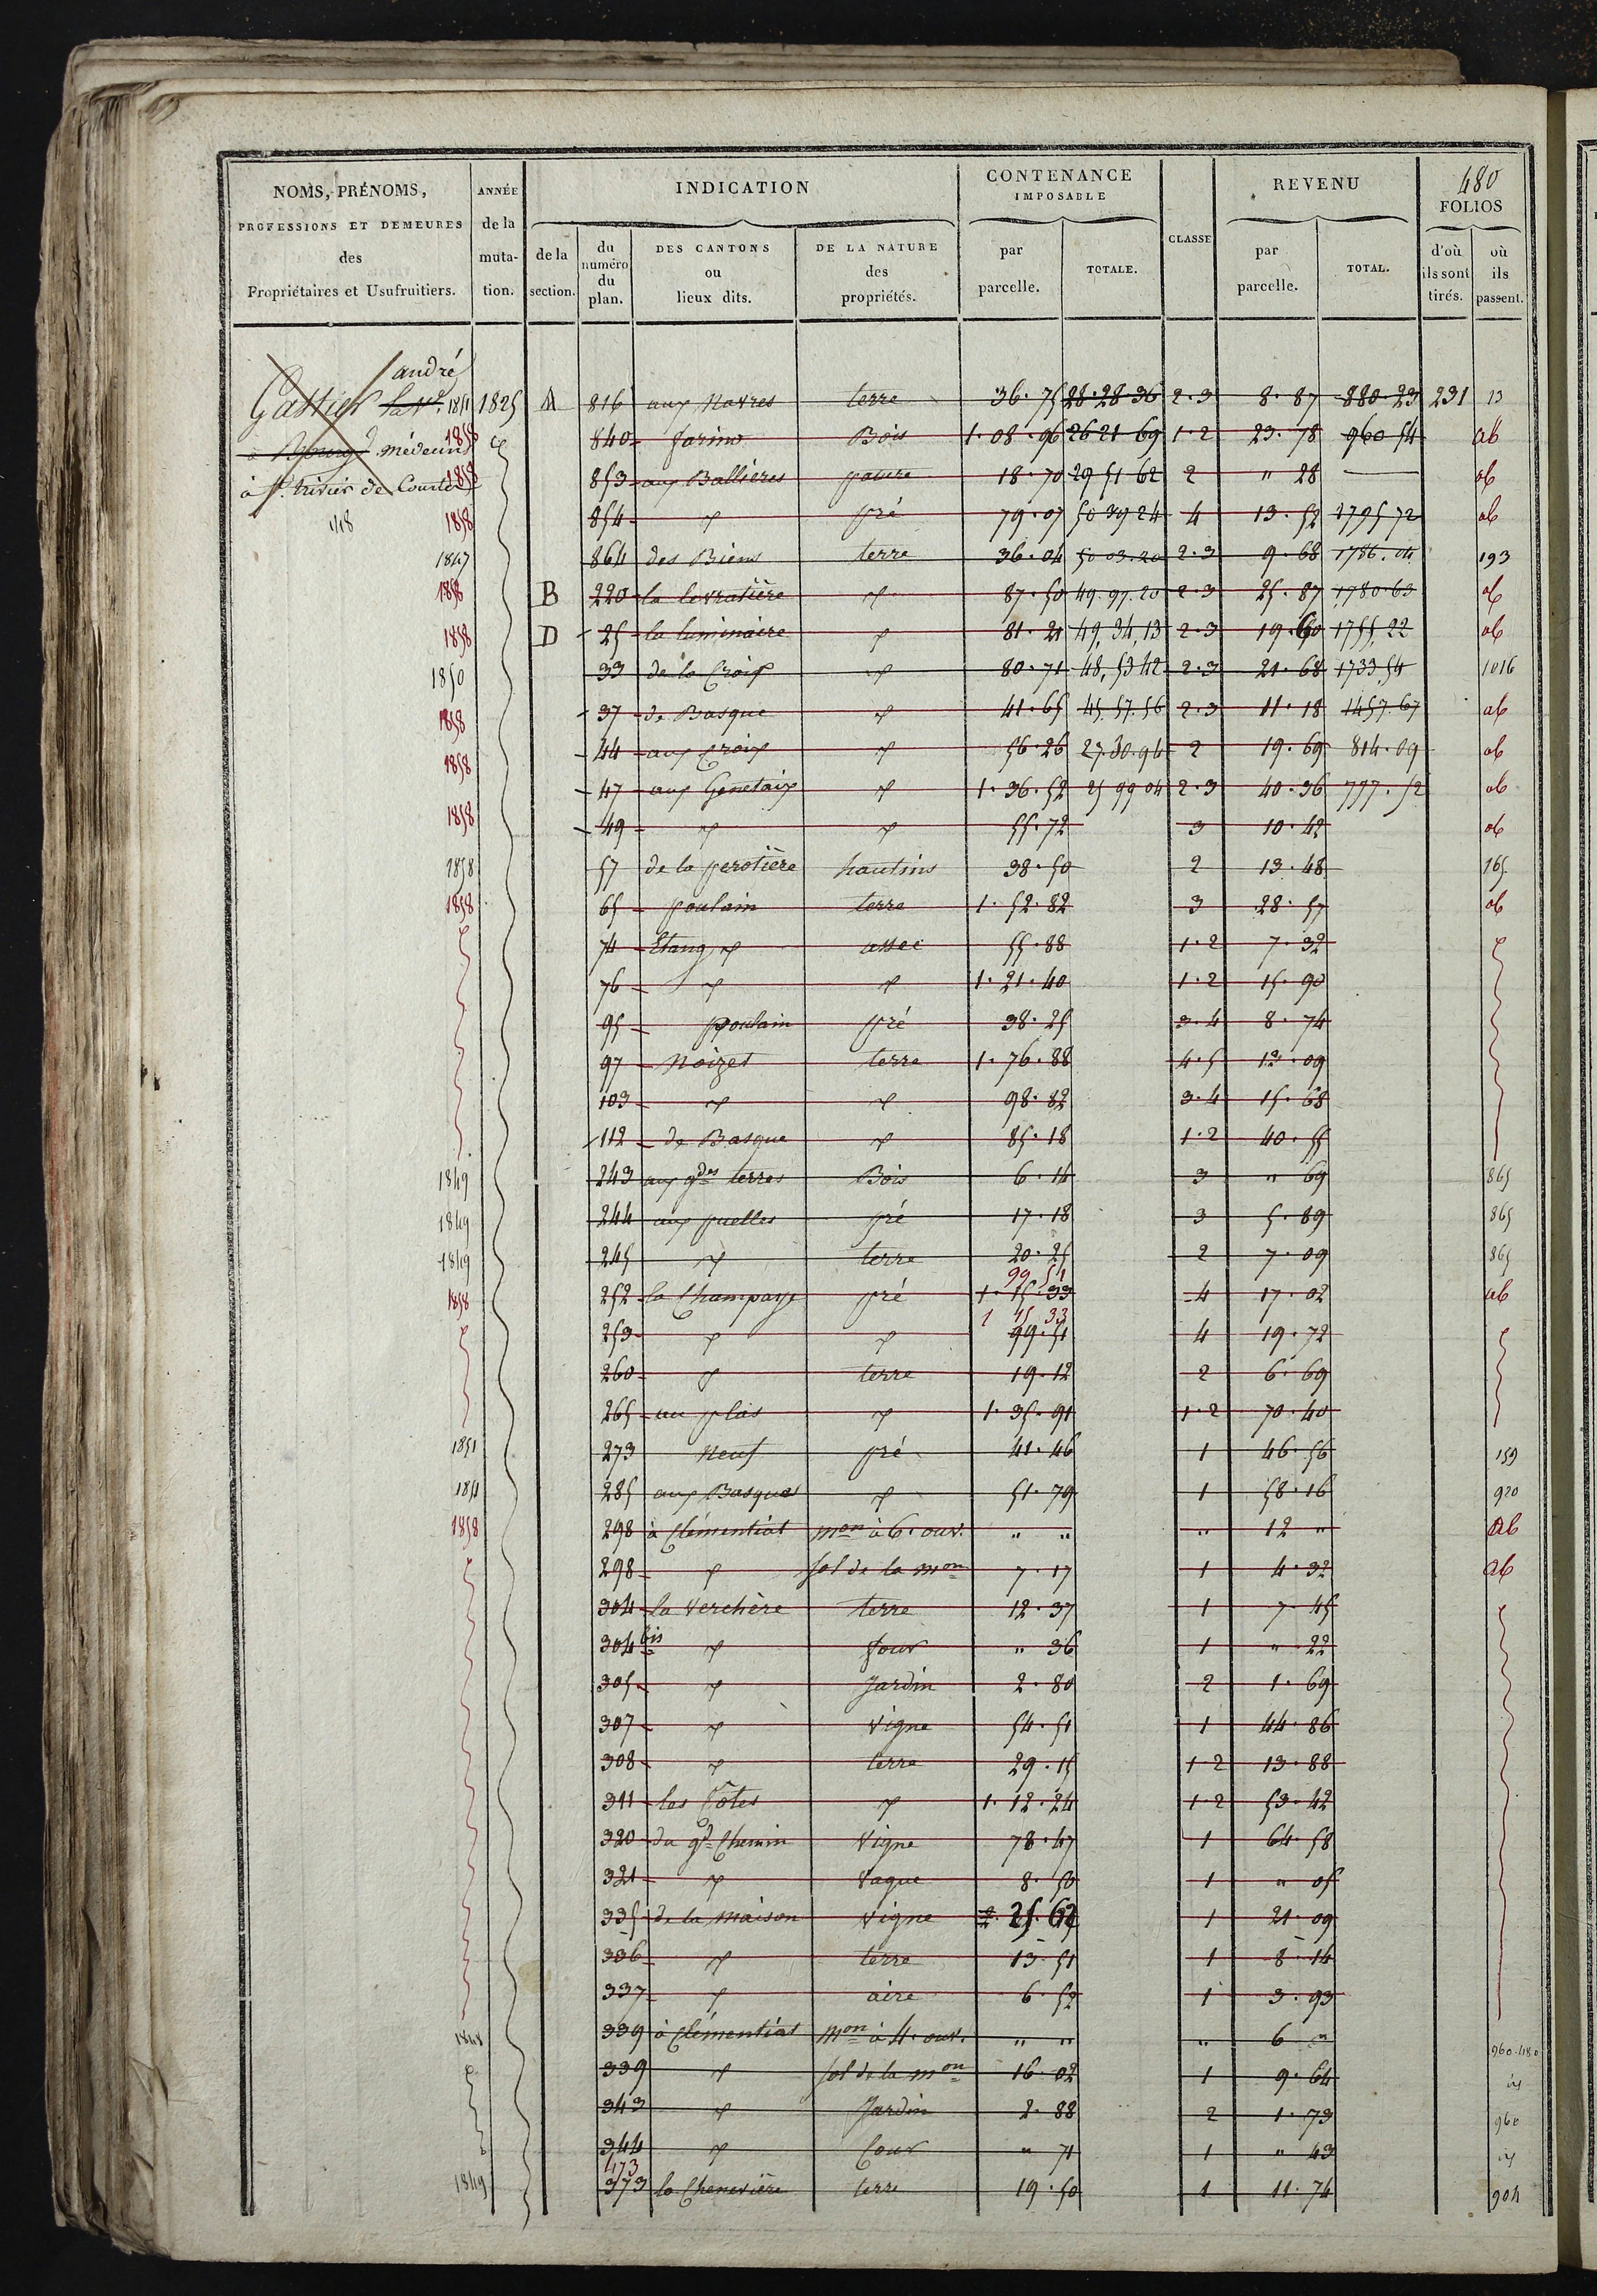 480
NOMS, PRÉNOMS, PROFESSIONS ET DEMEURES des Propriétaires et Usufruitiers.
ANNÉE de la muta- tion.
INDICATION
de la section.
du numéro du plan.
DES CANTONS ou lieux dits.
DE LA NATURE des propriétés.
CONTENANCE IMPOSABLE
par parcelle.
TOTALE.
CLASSE
REVENU
par parcelle.
TOTAL.
FOLIOS
d'où ils sont tirés.
où ils passent.
andré
Gattier 1851 1825 A 816 aux Navres terre 36.75 28.28.36 2.3 8.87 880.23 231 13
à Bourg médecin 1858 840 farino Bois 1.08.96 26 21 69 1.2 23.78 960 54 ab
à St. trivier de Courtes 1858 853 aux Ballières pature 18.70 29 51 62 2 " 28 ab
1858 854 pré 79.07 50 39 24 4 13.52 1795 72 ab
1847 864 des Biens terre 36.04 50.03.20 2.3 9.68 1786.04 193
1858 B 220 la levratière 87.50 49.97.20 2.3 25.87 1780.63 ab
1858 D 25 la luminaire 81.21 49,34,13 2.3 19.60 1755,22 ab
1850 33 de la Croix 80.71 48,53 42 2.3 21.68 1733.54 1016
1858 37 de Basque 41.65 45.57.56 2.3 11.18 1457.67 ab
1858 44 aux Croix 56.26 27.30.94 2 19.69 814.09 ab
1858 47 aux Genetaix 1.36.52 25 99 04 2.3 40.36 797.52 ab
1858 49 55.72 3 10.42 ab
1858 57 de la perotière hautins 38.50 2 13.48 165
1858 65 poulain terre 1.52.82 3 28.57 ab
74 Etang assec 55.88 1.2 7.32
76 1.21.40 1.2 15.90
95 poulain pré 38.25 3.4 8.74
97 Noizet terre 1.76.88 4.5 12.09
103 98.82 3.4 15.68
112 de Basque 85.18 1.2 40.55
1849 243 aux gdes terres Bois 6.14 3 " 69 865
1849 244 aux puelles pré 17.18 3 5.89 865
1849 245 terre 20.25 2 7.09 865
99 51
1858 252 la Champaye pré 1.15.33 4 17.02 ab
1 15 33
253 99.51 4 19.72
260 terre 19.12 2 6.69
265 au plais 1.35.91 1.2 70.40
1851 273 Neuf pré 41.46 1 46.56 159
1851 285 aux Basques 51.79 1 58.16 920
1858 298 à Clémentiat mon à 6. ouv. " " " 12 " ab
298 sol de la mon 7.17 1 4.32 ab
304 la Verchère terre 12.37 1 7.45
304 bis four " 36 1 " 22
305 Jardin 2.80 2 1.69
307 Vigne 54.51 1 44.86
308 terre 29.15 1.2 13.88
311 les Côtes 1.12.24 1.2 53.42
320 du gd Chemin Vigne 78.47 1 64.58
321 Vague 8.50 1 " 05
335 de la maison Vigne 25.62 1 21.09
336 terre 13.51 1 8.14
337 aire 6.52 1 3.93
1848 339 à Clémentiat mon à 4. ouv. " " " 6 " 960.480
339 sol de la mon 16.02 1 9.64
343 Jardin 2.88 2 1.73 960
344 Cour " 71 1 " 43
473
1849 373 la Chenevière terre 19.50 1 11.74 904